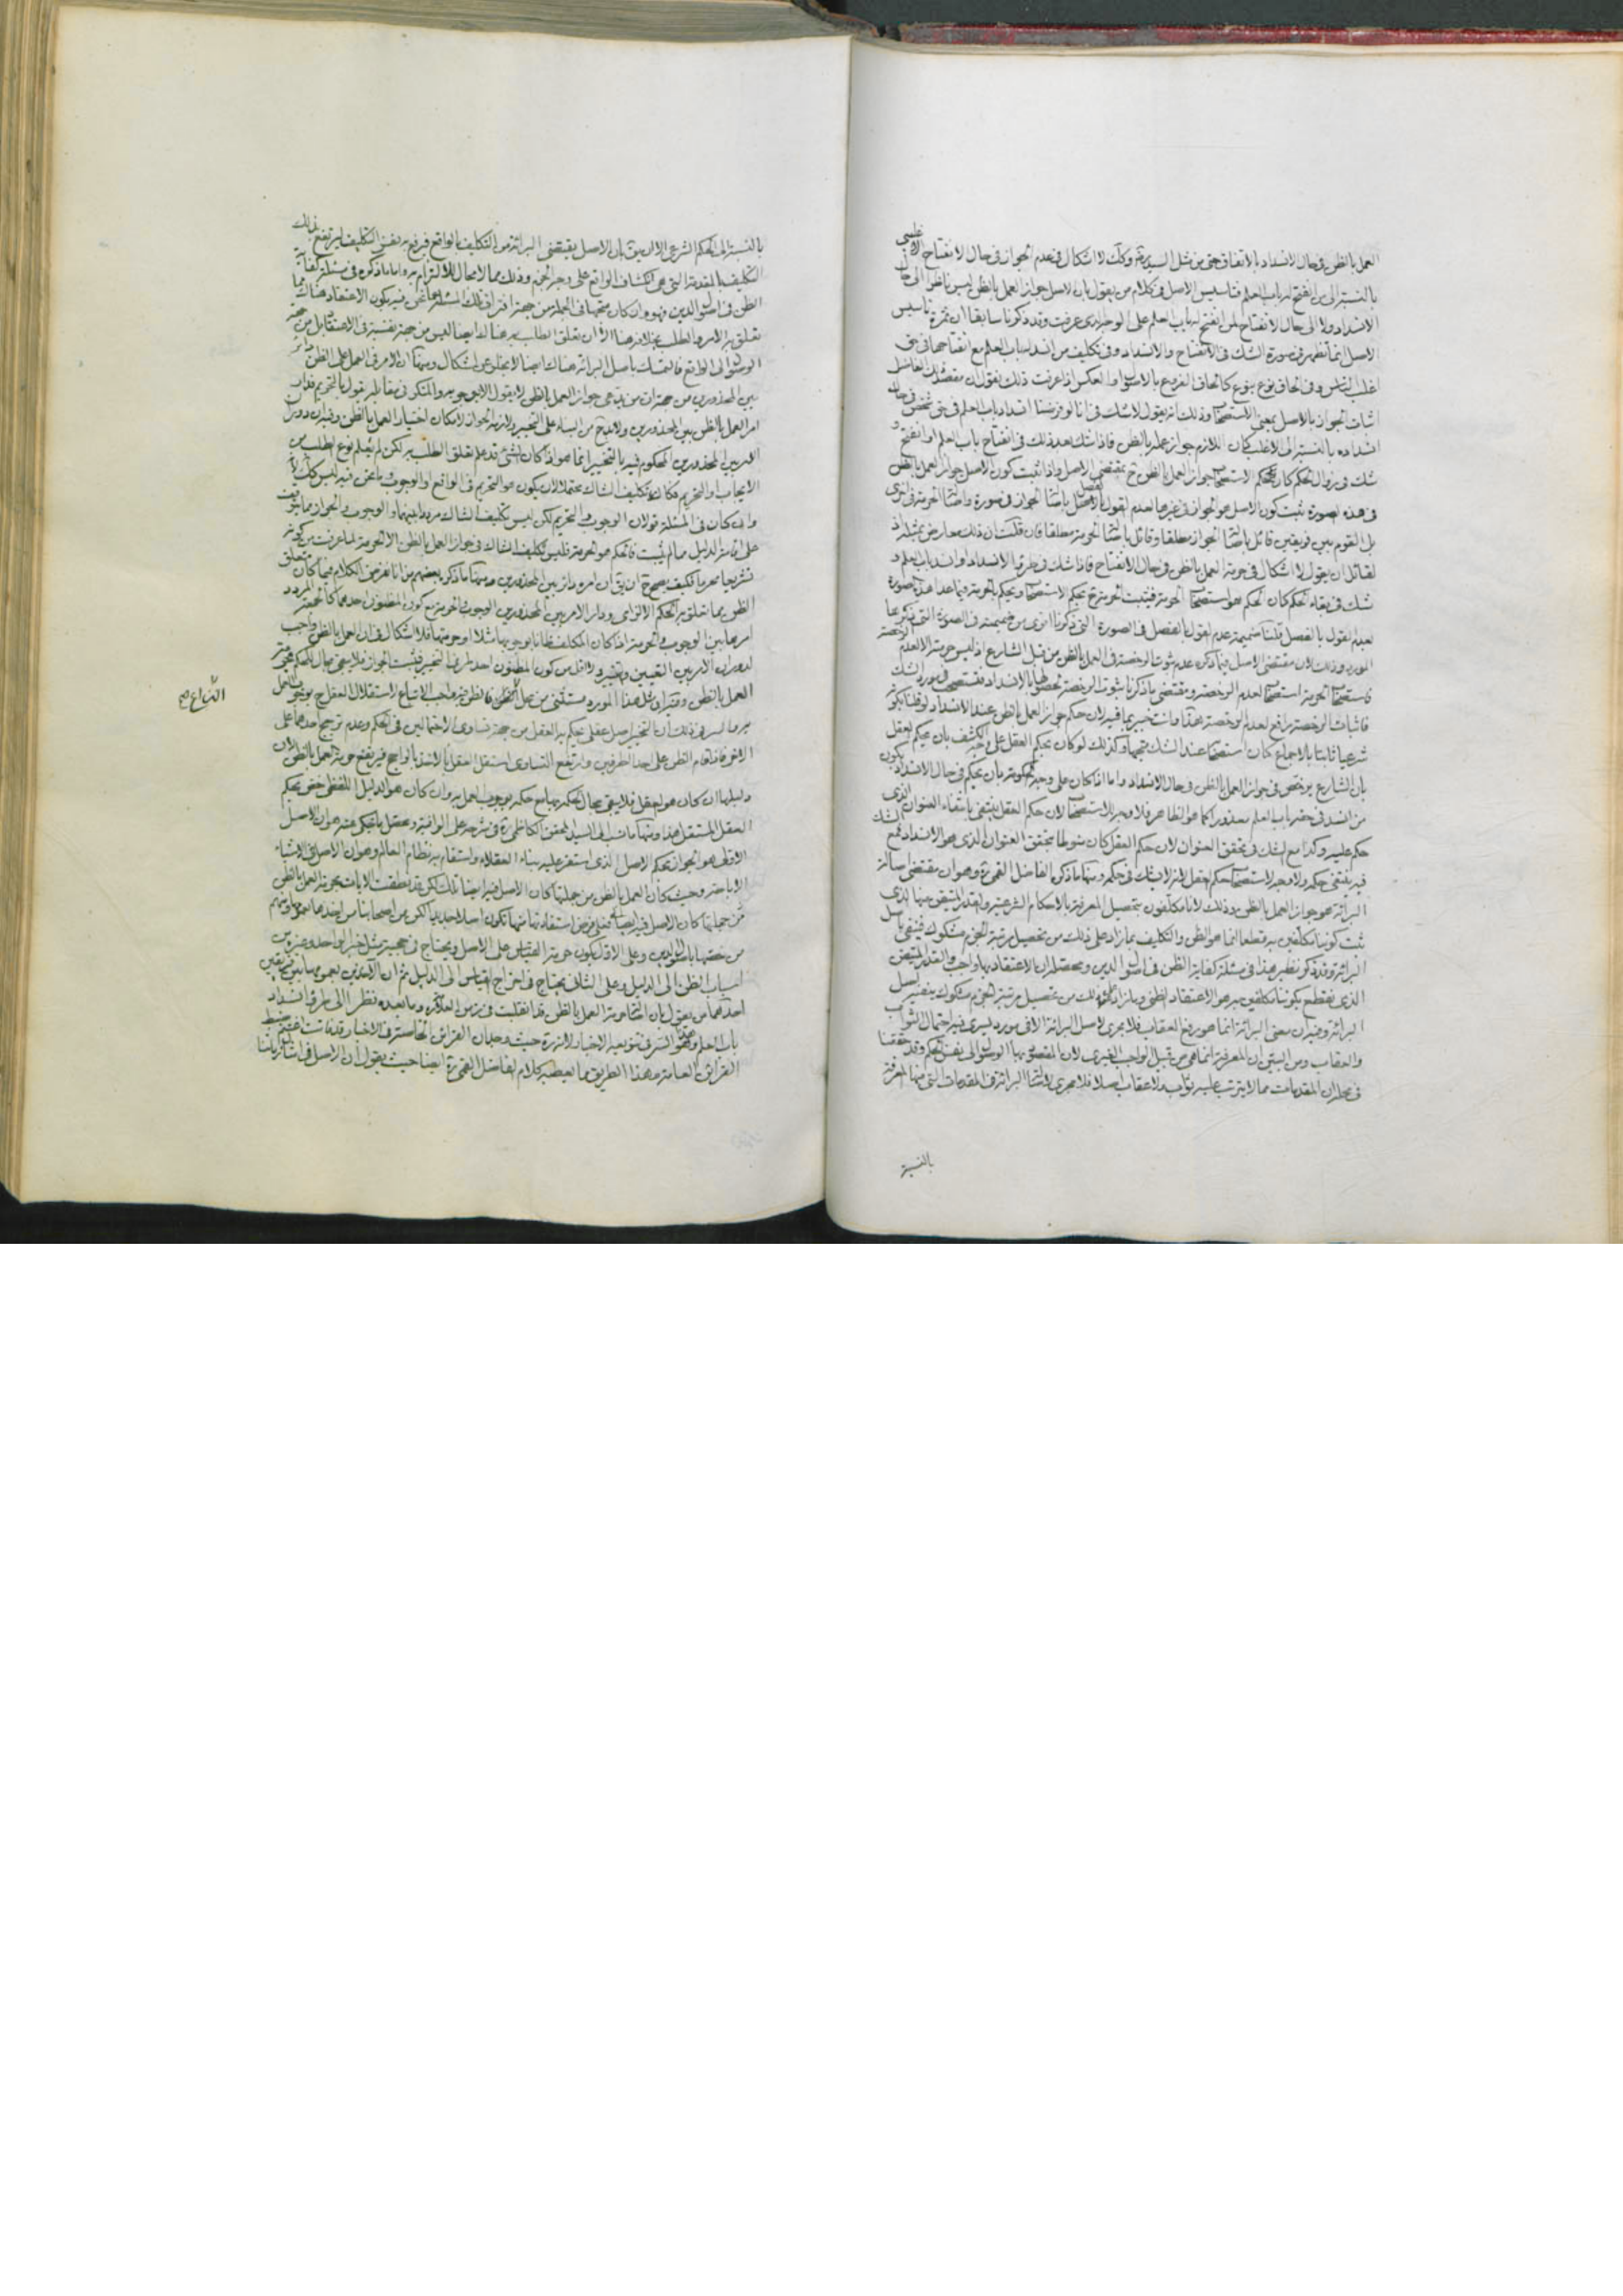 العمل بالظن في حال الانسداد بالاتفاق حتى من مثل السيد ره وكك لا اشكال في عدم الجواز في حال الانفتاح الاغلبي
بالنسبة الى من انفتح له باب العلم فتاسيس الاصل في كلام من يقول بان الاصل جواز العمل بالظن ليس ناظرا الى حال
الانسداد ولا الى حال الانفتاح لمن انفتح له باب العلم على الوجه الذي عرفت وقد ذكرنا سابقا ان ثمرة تاسيس
الاصل انما تظهر في صورة الشك في الانفتاح والانسداد وفي تكليف من انسد باب العلم مع انفتاحها في حق
اغلب الناس وفي الحاق نوع بنوع كالحاق الفروع بالاصول او العكس اذا عرفت ذلك نقول ان مقصود الفاضل
اثبات الجواز بالاصل بمعنى الاستصحاب وذلك انه يقول لا شك في انا لو فرضنا انسداد باب العلم في حق شخص في حال
انسداده بالنسبة الى الاغلب كان اللازم جواز عمله بالظن فاذا شك بعد ذلك في انفتاح باب العلم او انفتح و
شك في زوال الحكم كان مقتضى الاستصحاب جواز العمل بالظن ح بمقتضى الاصل واذا ثبت كون الاصل جواز العمل بالظن
في هذه الصورة ثبت كون الاصل هو الجواز في غيرها لعدم القول بالفصل باصالة الجواز في صورة واصالة الحرمة في اخرى
بل القوم بين فريقين قائل باصالة الجواز مطلقا وقائل باصالة الحرمة مطلقا فان قلت ان ذلك معارض بمثله اذ
لقائل ان يقول لا اشكال في حرمة العمل بالظن في حال الانفتاح فاذا شك في طرو الانسداد او انسد باب العلم و
شك في بقاء الحكم كان الحكم هو استصحاب الحرمة فيثبت الحرمة ح بحكم الاستصحاب ويحكم بالحرمة فيما عدا هذه الصورة
بعدم القول بالفصل قلنا ضميمة عدم القول بالفصل في الصورة التي ذكرنا اقوى من ضميمته في الصورة التي ذكرها
المورد وذلك لان مقتضى الاصل فيما ذكره عدم ثبوت الرخصة في العمل بالظن من قبل الشارع اذ ليس حرمته الا لعدم الرخصة
فاستصحاب الحرمة استصحاب لعدم الرخصة ومقتضى ما ذكرنا ثبوت الرخصة لحصولها بالانسداد فتستصحب في مورد الشك
فاثبات الرخصة رافع لعدم الرخصة هذا وانت خبير بما فيه لان حكم جواز العمل بالظن عند الانسداد لو قلنا بكونه
شرعيا ثابتا بالاجماع كان استصحابه عند الشك متجها وكذلك لو كان بحكم العقل على وجه الكشف بان يحكم العقل
بان الشارع يرخص في جواز العمل بالظن في حال الانسداد واما اذا كان على وجه الحكومة بان يحكم في حال الانسداد بكون
من انسد في حقه باب العلم معذورا كما هو الظاهر فلا وجه للاستصحاب لان حكم العقل ينتفي بانتفاء العنوان الذي
حكم عليه وكذا مع الشك في تحقق العنوان لان حكم العقل كان منوطا بتحقق العنوان الذي هو الانسداد فمع الشك
فيه ينتفي حكمه ولا وجه لاستصحاب حكم العقل لانه لا يشك في حكمه ومنها ما ذكره الفاضل القمي ره وهو ان مقتضى اصالة
البرائة هو جواز العمل بالظن وذلك لانا مكلفون بتحصيل المعرفة بالاحكام الشرعية والقدر المتيقن منها الذي
ثبت كوننا مكلفين به قطعا انما هو الظن والتكليف بما زاد على ذلك من تحصيل مرتبة الجزم مشكوك فينفى باصل
البرائة وقد ذكر نظير هذا في مسئلة كفاية الظن في اصول الدين ومحصله ان الاعتقاد بها واجب والقدر المتيقن
الذي نقطع بكوننا مكلفين به هو الاعتقاد الظني وما زاد على ذلك من تحصيل مرتبة الجزم مشكوك ينفيه اصل
البرائة وفيه ان معنى البرائة انما هو رفع العقاب فلا يجرى اصل البرائة الا في مورد يسرى فيه احتمال الثواب
والعقاب ومن البين ان المعرفة انما هي من قبيل الواجب الغيرى لان المقصود بها الوصول الى نفس الحكم وقد حققنا
في محله ان المقدمات مما لا يترتب عليه ثواب ولا عقاب اصلا فلا مجرى لاصالة البرائة في المقدمات التي منها المعرفة
بالنسبة
بالنسبة الى الحكم الشرعي الا ان يق بان الاصل يقتضى البرائة من التكليف بالواقع فيرفع به نفس التكليف ليرتفع بذلك
التكليف بالمقدمة التي هي انكشاف الواقع على وجه الجزم وذلك مما لا مجال للالتزام به واما ما ذكره في مسئلة كفاية
الظن في اصول الدين فهو وان كان متجها في الجملة من جهة افتراق تلك المسئلة عما نحن فيه بكون الاعتقاد هناك مما
تعلق به الامر والطلب بخلافه هنا الا ان تعلق الطلب به هنالك ايضا ليس من جهة نفسية في الاعتقاد بل من جهة
الوصول الى الواقع فالتمسك باصل البرائة هناك ايضا لا يخلو عن اشكال ومنها ان الامر في العمل على الظن دائر
بين المحذورين من جهة ان من يدعى جواز العمل بالظن لا يقول الا بوجوبه والمنكر في مقابله يقول بالتحريم فدار
امر العمل بالظن بين المحذورين ولا بد ح من البناء على التخيير ولازمه الجواز لامكان اختيار العمل بالظن وفيه ان دوران
الامر بين المحذورين المحكوم فيه بالتخيير انما هو اذا كان لشئ قد علم تعلق الطلب به لكن لم يعلم نوع الطلب من
الايجاب او التحريم فكان تكليف الشاك محتملا لان يكون هو التحريم في الواقع او الوجوب وما نحن فيه ليس كك لانه
وان كان في المسئلة قولان الوجوب والتحريم لكن ليس تكليف الشاك مرددا بينهما والوجوب والجواز مما يتوقف
على اقامة الدليل فما لم يثبت فالحكم هو الحرمة فليس تكليف الشاك في جواز العمل بالظن الا الحرمة لما عرفت من كونه
تشريعا محرما فكيف يصح ح ان يق ان امره دائر بين المحذورين ومنها ما ذكره بعضهم من انا نفرض الكلام فيما كان متعلق
الظن مما تعلق به الحكم الالزامي ودار الامر بين المحذورين الوجوب والحرمة مع كون المظنون احدهما كالجمعة المردد
امرها بين الوجوب والحرمة اذا كان المكلف ظانا بوجوبها مثلا او حرمتها فلا اشكال في ان العمل بالظن واجب
لدوران الامر بين التعيين والتخيير ولا اقل من كون المظنون احد طرفي التخيير فيثبت الجواز فلا يبقى مجال للحكم بحرمة
العمل بالظن وفيه ان مثل هذا المورد مستثنى من محل النزاع فالظن فيه واجب الاتباع لاستقلال العقل ح بوجوب العمل
به والسر في ذلك ان التخيير اصل عقلي يحكم به العقل من جهة تساوى الاحتمالين في الحكم وعدم ترجيح احدهما على
الاخر فاذا قام الظن على احد الطرفين وارتفع التساوى استقل العقل بالاخذ بالراجح فيرتفع حرمة العمل بالظن لان
دليلها ان كان هو العقل فلا يبقى مجال لحكمه بها مع حكمه بوجوب العمل به وان كان هو الدليل اللفظي خص بحكم
العقل المستقل هذا ومنها ما نسب الى السيد المحقق الكاظمي ره في شرحه على الوافية ومحصل ما يحكى عنه هو ان الاصل
الاولى هو الجواز بحكم الاصل الذي استقر عليه بناء العقلاء واستقام به نظام العالم وهو ان الاصل في الاشياء
الاباحة وحيث كان العمل بالظن من جملتها كان الاصل فيه ايضا ذلك لكن قد نطقت الايات بحرمة العمل بالظن
من ختمها باصول الدين وعلى الاول يكون حرمة القياس على الاصل ويحتاج في حجية مثل خبر الواحد وغيره من
اسباب الظن الى الدليل وعلى الثاني يحتاج في اخراج القياس الى الدليل ثم ان الآخذين بعمومها بين فريقين
احدهما من يقول بان اصالة حرمة العمل بالظن قد انقلبت في زمن العلامة وما بعده نظرا الى طرو انسداد
باب العلم وهذا هو السر في تنويعه الاخبار لانه ره حيث وجد ان القرائن الخاصة في الاخبار قد فاتت اعتنى بضبط
القرائن العامة وهذا الطريق مما يعطيه كلام الفاضل القمي ره ايضا حيث يقول ان الاصل في امثال زماننا
النزاع صح